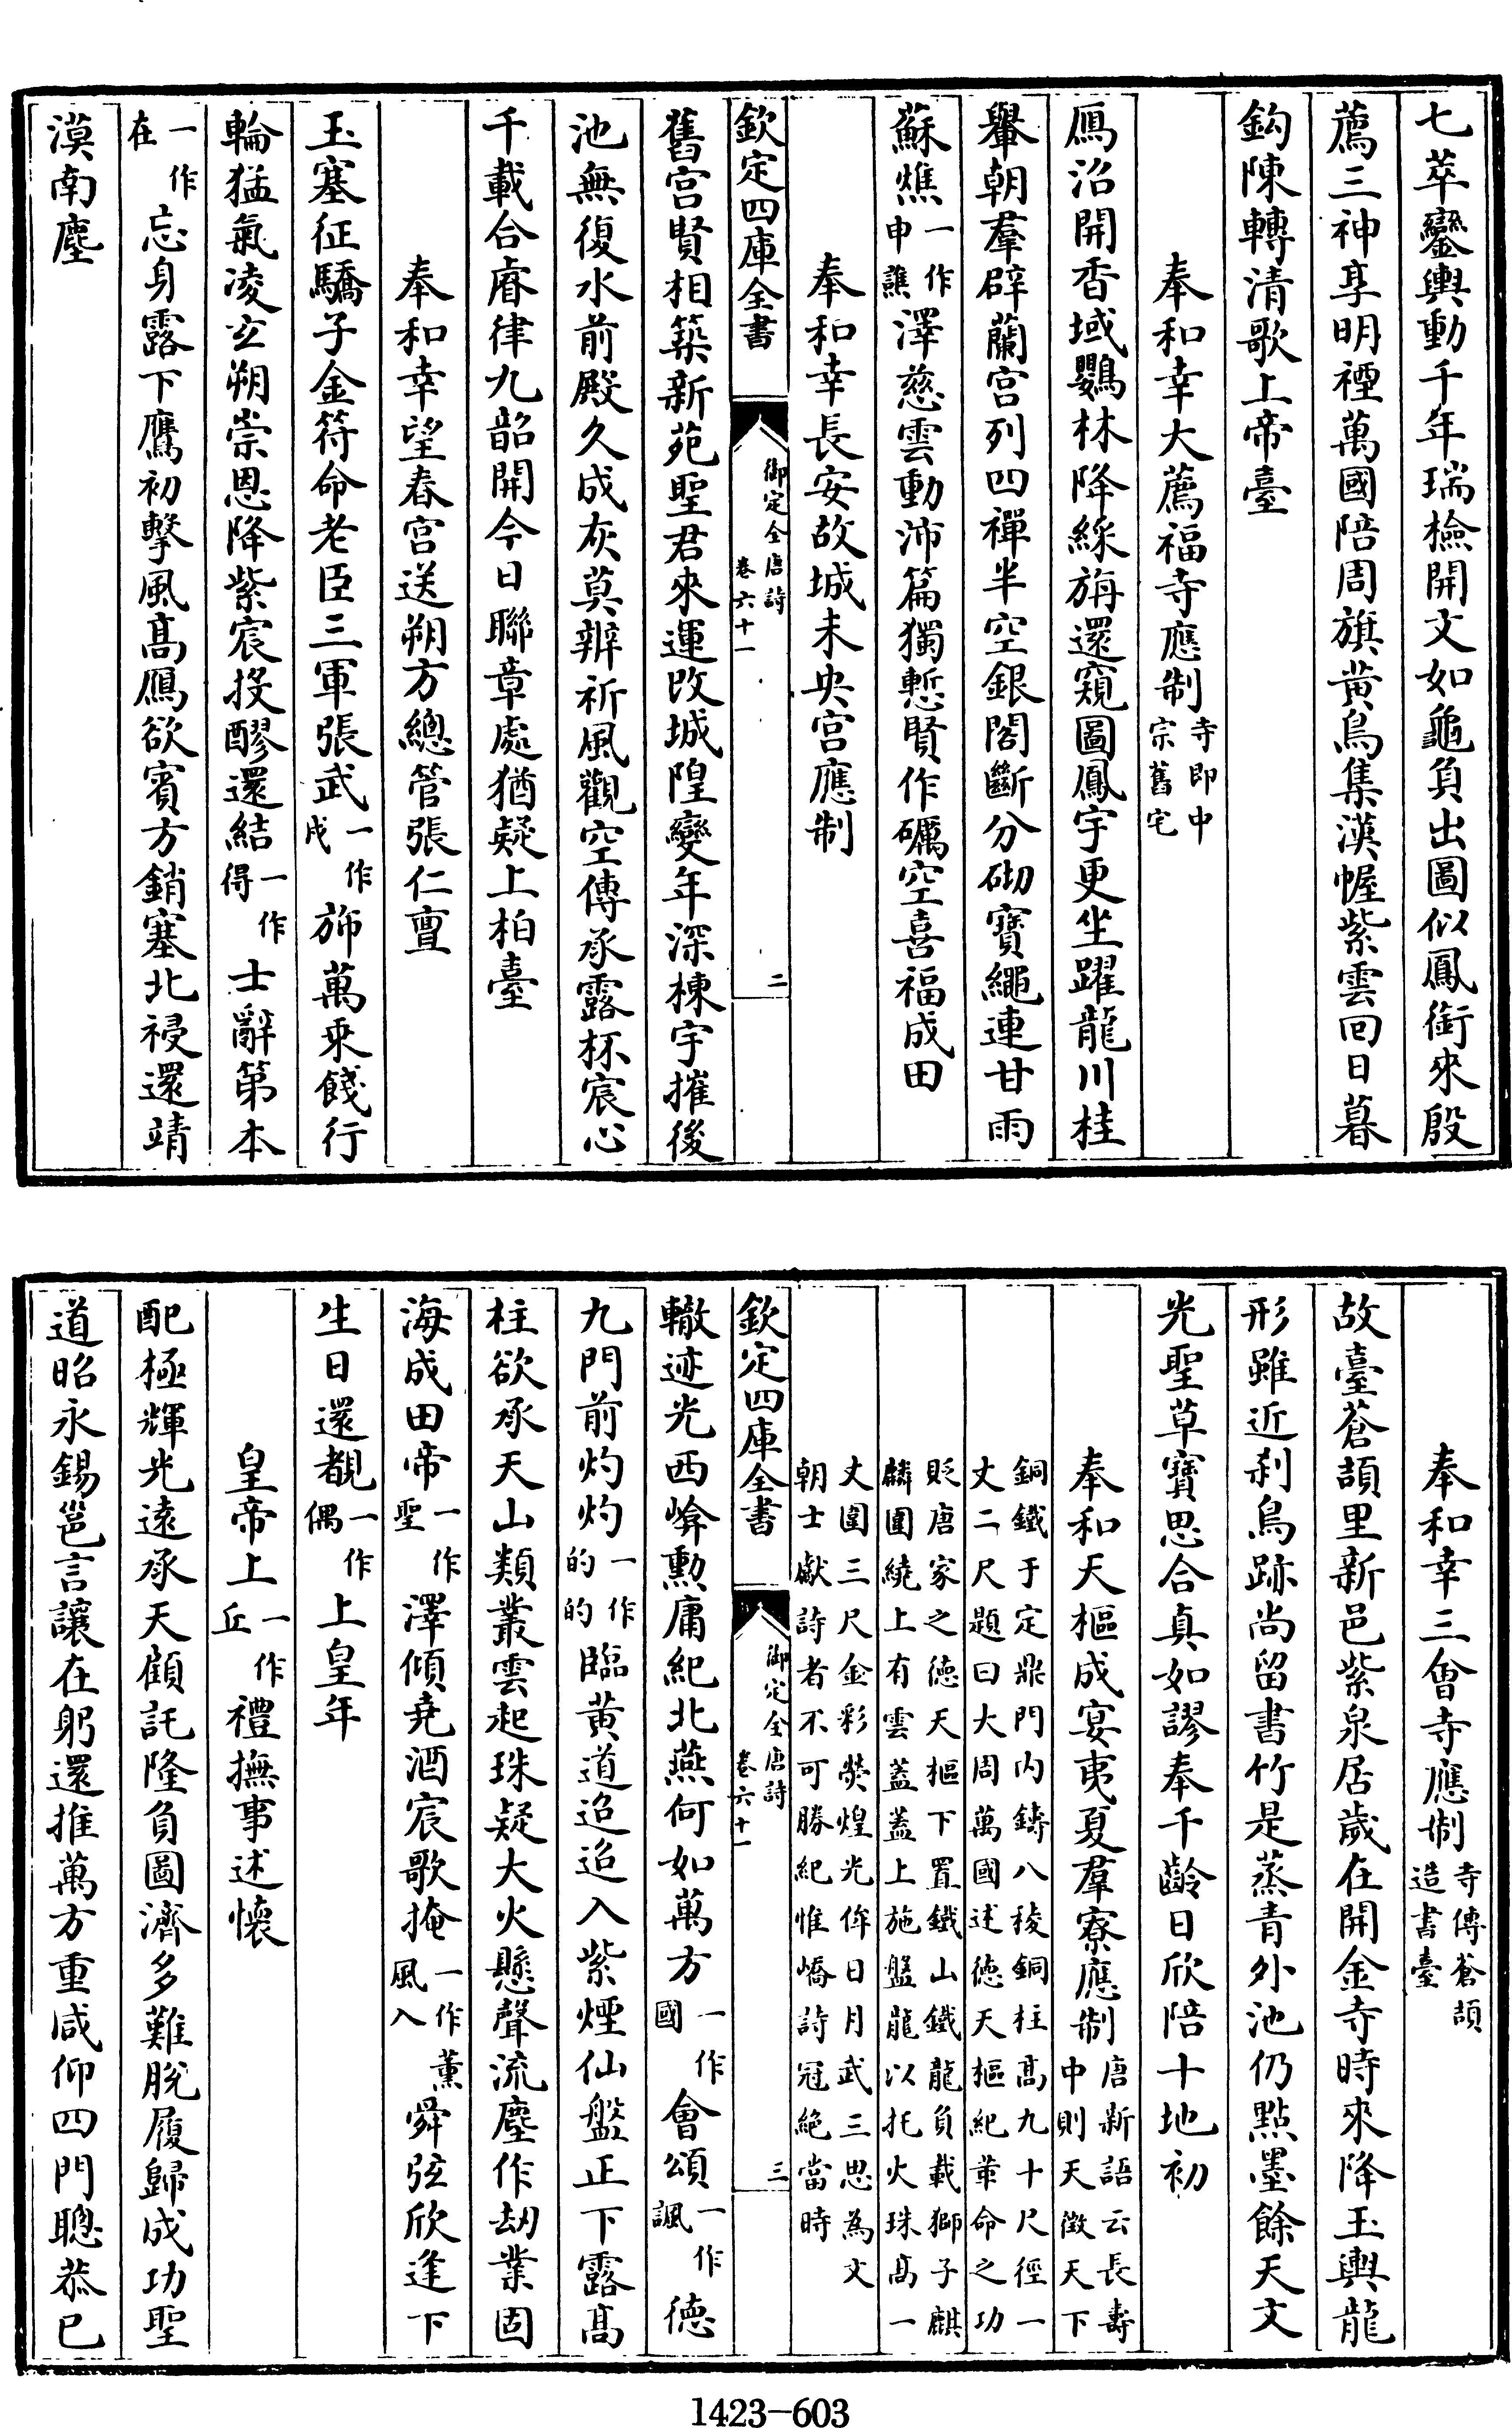 七萃鑾輿動千年瑞檢開文如龜負出圖似鳳銜來殷
薦三神享明禋萬國陪周旗黄鳥集漢幄紫雲回日暮
鈎陳轉清歌上帝臺
奉和幸大薦福寺應制寺即中宗舊宅
鴈沼開香域鸚林降綵旃還窺圖鳳宇更坐躍龍川桂
轝朝羣辟蘭宫列四禪半空銀閣斷分砌寶繩連甘雨
蘇燋一作申譙澤慈雲動沛篇獨慙賢作礪空喜福成田
奉和幸長安故城未央宫應制
欽定四庫全書
御定全唐詩
卷六十一
二
舊宫賢相築新苑聖君來運改城隍變年深棟宇摧後
池無復水前殿久成灰莫辨祈風觀空傳承露杯宸心
千載合睿律九韶開今日聯章處猶疑上柏臺
奉和幸望春宫送朔方總管張仁亶
玉塞征驕子金符命老臣三軍張武一作戍斾萬乘餞行
輪猛氣凌玄朔崇恩降紫宸投醪還結一作得士辭第本
一作在忘身露下鷹初擊風高鴈欲賓方銷塞北祲還靖
漠南塵
奉和幸三會寺應制寺傳蒼頡造書臺
故臺蒼頡里新邑紫泉居歲在開金寺時來降玉輿龍
形雖近刹鳥跡尚留書竹是蒸青外池仍點墨餘天文
光聖草寶思合真如謬奉千齡日欣陪十地初
奉和天樞成宴夷夏羣寮應制唐新語云長壽中則天徵天下
銅鐵于定鼎門内鑄八稜銅柱高九十尺徑一丈二尺題曰大周萬國述徳天樞紀革命之功
貶唐家之徳天樞下置鐵山鐵龍負載獅子麒麟圍繞上有雲蓋蓋上施盤龍以托火珠高一
丈圍三尺金彩熒煌光侔日月武三思為文朝士獻詩者不可勝紀惟嶠詩冠絶當時
欽定四庫全書
御定全唐詩
卷六十一
三
轍迹光西崦勲庸紀北燕何如萬方一作國會頌一作諷徳
九門前灼灼一作的的臨黄道迢迢入紫煙仙盤正下露高
柱欲承天山類叢雲起珠疑大火懸聲流塵作劫業固
海成田帝一作聖澤傾堯酒宸歌掩一作薰風入舜弦欣逢下
生日還覩一作偶上皇年
皇帝上一作丘禮撫事述懷
配極輝光遠承天顧託隆負圖濟多難脫履歸成功聖
道昭永錫邕言讓在躬還推萬方重咸仰四門聰恭已
1423-603